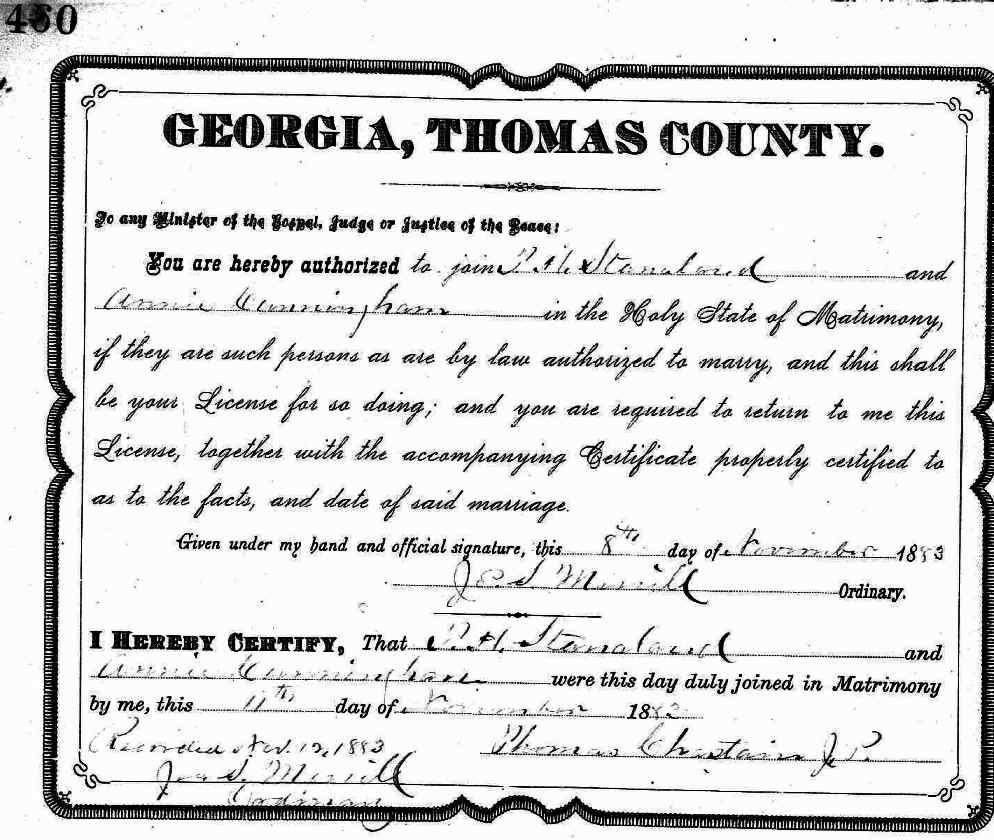 460
GEORGIA, THOMAS COUNTY.
To any Minister of the Gospel, Judge or Justice of the Peace:
You are hereby authorized to join P. H. Stanaland and
Annie Cunningham in the Holy State of Matrimony,
if they are such persons as are by law authorized to marry, and this shall
be your License for so doing; and you are required to return to me this
License, together with the accompanying Certificate properly certified to
as to the facts, and date of said marriage.
Given under my hand and official signature, this 8th day of November 1883
Merrill Ordinary.
I HEREBY CERTIFY, That P. H. Stanaland and
Annie Cunningham were this day duly joined in Matrimony
by me, this 11th day of November 1883
Recorded Nov. 12, 1883 Thomas Chastain J.P.
Merrill
Ordinary